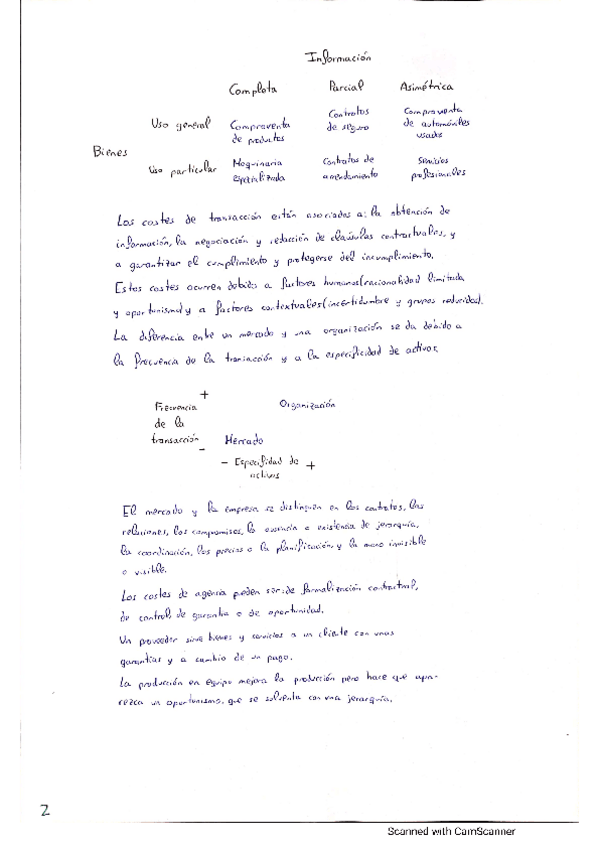 Información
Completa Parcial Asimétrica
Uso general Compraventa de productos Contratos de seguro Compraventa de automóviles usados
Bienes
Uso particular Maquinaria especializada Contratos de arrendamiento Servicios profesionales
Los costes de transacción están asociados a: la obtención de
información, la negociación y redacción de cláusulas contractuales, y
a garantizar el cumplimiento y protegerse del incumplimiento.
Estos costes ocurren debido a factores humanos (racionalidad limitada
y oportunismo) y a factores contextuales (incertidumbre y grupos reducidos).
La diferencia entre un mercado y una organización se da debido a
la frecuencia de la transacción y a la especificidad de activos.
+
Frecuencia Organización
de la
transacción
- Mercado
- Especifidad de +
activos
El mercado y la empresa se distinguen en los contratos, las
relaciones, los compromisos, la ausencia o existencia de jerarquía,
la coordinación, los precios o la planificación, y la mano invisible
o visible.
Los costes de agencia pueden ser: de formalización contractual,
de control, de garantía o de oportunidad.
Un proveedor sirve bienes y servicios a un cliente con unas
garantías y a cambio de un pago.
La producción en equipo mejora la producción pero hace que apa-
rezca un oportunismo, que se solventa con una jerarquía.
2
Scanned with CamScanner